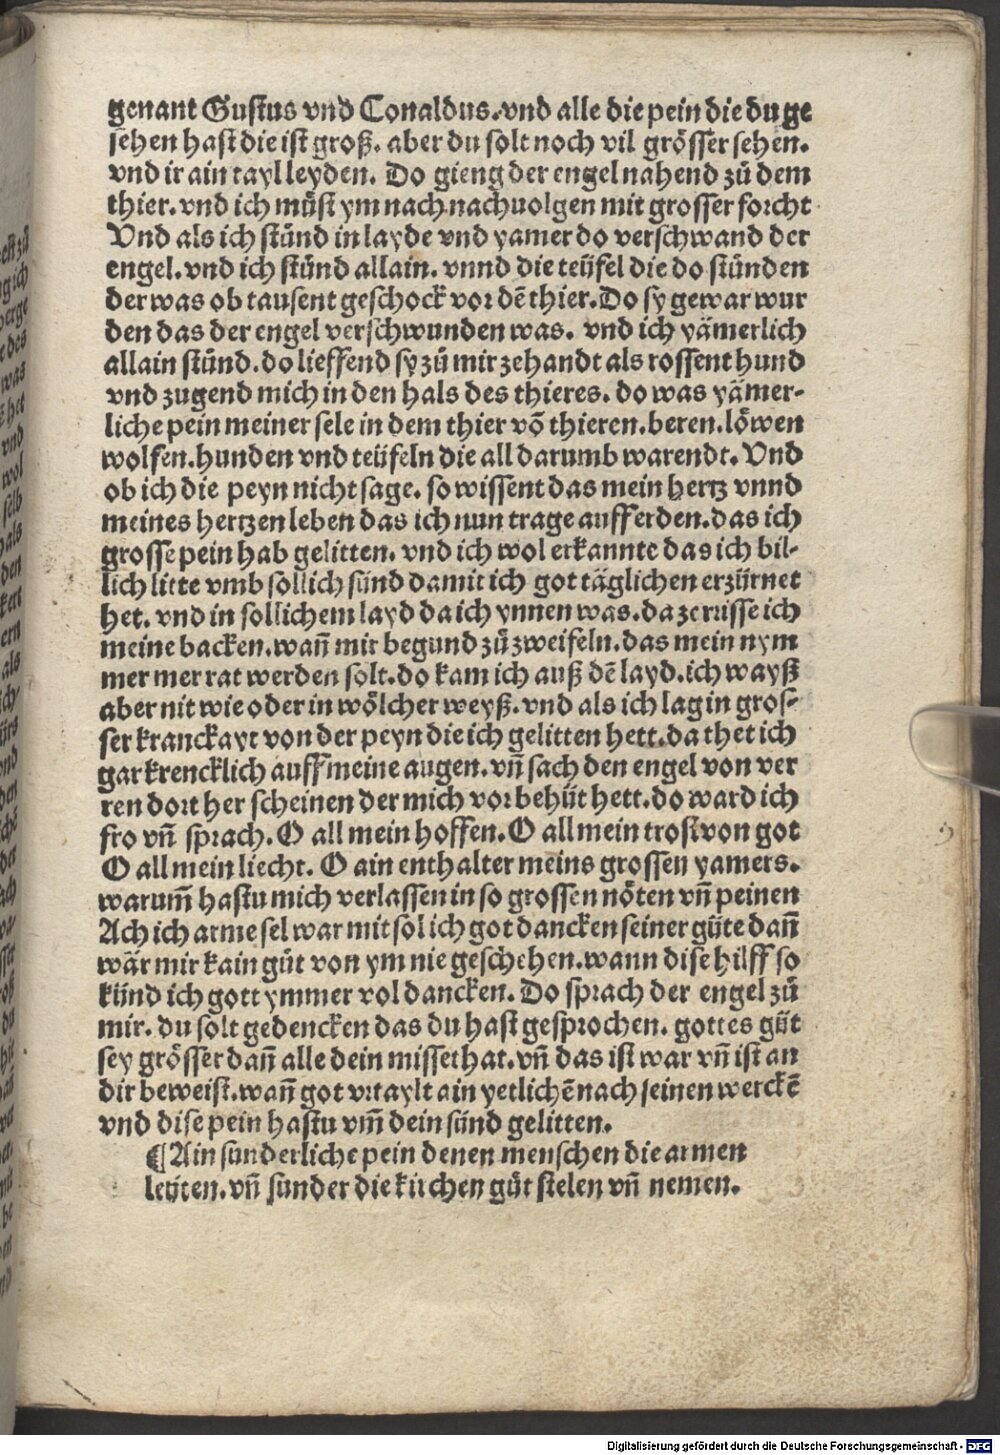 genant Gustus vnd Conaldus. vnd alle die pein die du ge
sehen hast die ist groß. aber du solt noch vil grösser sehen.
vnd ir ain tayl leyden. Do gieng der engel nahend zů dem
thier. vnd ich můst ym nach nachuolgen mit grosser forcht
Vnd als ich stůnd in layde vnd yamer do verschwand der
engel. vnd ich stůnd allain. vnnd die teüfel die do stůnden
der was ob tausent geschock vor dē thier. Do sy gewar wur
den das der engel verschwunden was. vnd ich yämerlich
allain stůnd. do lieffend sy zů mir zehandt als rossent hund
vnd zugend mich in den hals des thieres. do was yämer-
liche pein meiner sele in dem thier vō thieren. beren. löwen
wolfen. hunden vnd teüfeln die all darumb warendt. Vnd
ob ich die peyn nicht sage. so wissent das mein hertz vnnd
meines hertzen leben das ich nun trage auff erden. das ich
grosse pein hab gelitten. vnd ich wol erkannte das ich bil-
lich litte vmb sollich sünd damit ich got täglichen erzürnet
het. vnd in sollichem layd da ich ynnen was. da zerrisse ich
meine backen. wañ mir begund zů zweifeln. das mein nym
mer mer rat werden solt. do kam ich auß dē layd. ich wayß
aber nit wie oder in wölcher weyß. vnd als ich lag in gros-
ser kranckayt von der peyn die ich gelitten hett. da thet ich
gar krencklich auff meine augen. vñ sach den engel von ver
ren dort her scheinen der mich vor behüt hett. do ward ich
fro vñ sprach. O all mein hoffen. O all mein trost von got
O all mein liecht. O ain enthalter meins grossen yamers.
warum̃ hastu mich verlassen in so grossen nöten vñ peinen
Ach ich arme sel war mit sol ich got dancken seiner güte dañ
wär mir kain gůt von ym nie geschehen. wann dise hilff so
künd ich gott ymmer vol dancken. Do sprach der engel zů
mir. du solt gedencken das du hast gesprochen. gottes güt
sey grösser dañ alle dein missethat. vñ das ist war vñ ist an
dir beweist. wañ got vrtaylt ain yetlichē nach seinen werckē
vnd dise pein hastu vm̃ dein sünd gelitten.
¶ Ain sunderliche pein denen menschen die armen
leüten. vñ sunder die kirchen gůt stelen vñ nemen.
Digitalisierung gefördert durch die Deutsche Forschungsgemeinschaft - DFG